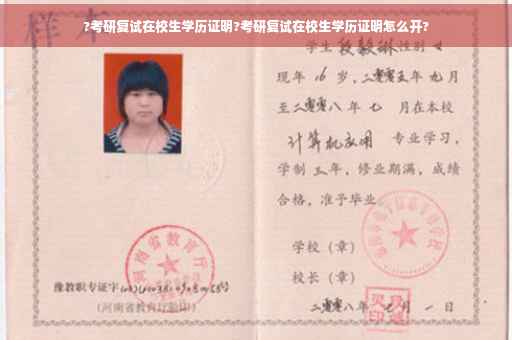 ?考研复试在校生学历证明?考研复试在校生学历证明怎么开?
样本
学生段毅琳性别 女
现年 16 岁,二零零五年 九月
至二零零八 年 七 月在本校
计算机应用 专业学习,
学制 三 年,修业期满,成绩
合格,准予毕业
学校(章)
校长(章)
二零零八年 七 月 一 日
河南省教育厅
豫教职专证字
(河南省教育厅验印)